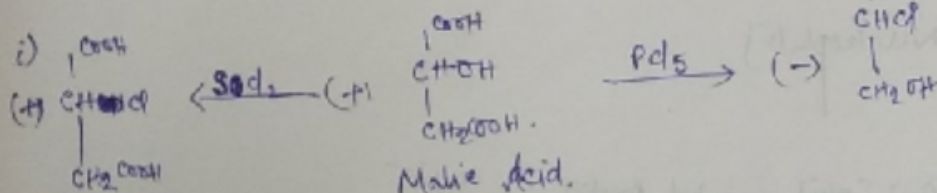 i) COOH
(+) CHCl
CH2COOH
<—SOCl2— (+)
COOH
CHOH
CH2COOH.
Malic Acid.
PCl5 —> (-)
CHCl
CH2OH